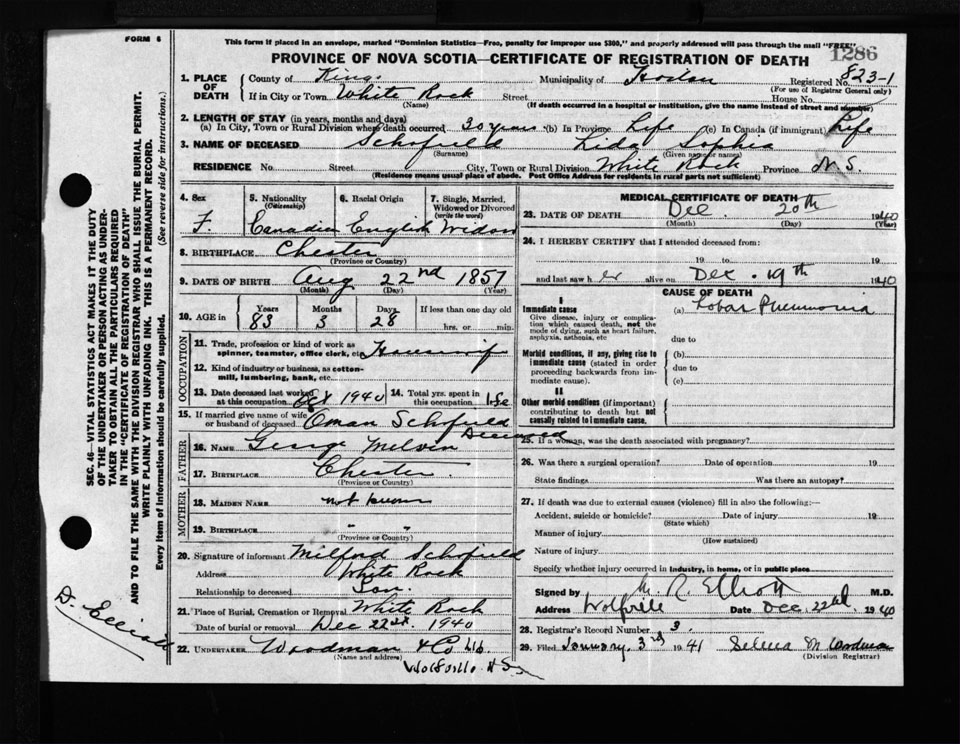 FORM 6
This form if placed in an envelope, marked "Dominion Statistics—Free, penalty for improper use $300," and properly addressed will pass through the mail "FREE"
1286
PROVINCE OF NOVA SCOTIA—CERTIFICATE OF REGISTRATION OF DEATH
1. PLACE OF DEATH County of Kings Municipality of Registered No. 823-1
(For use of Registrar General only)
If in City or Town White Rock Street House No.
(Name) (If death occurred in a hospital or institution, give the name instead of street and number)
2. LENGTH OF STAY (in years, months and days)
(a) In City, Town or Rural Division where death occurred 30 years (b) In Province Life (c) In Canada (if immigrant) Life
3. NAME OF DECEASED Schofield Lida Sophia
(Surname) (Given name or names)
RESIDENCE No. Street City, Town or Rural Division White Rock Province N.S.
(Residence means usual place of abode. Post Office Address for residents in rural parts not sufficient)
SEC. 46—VITAL STATISTICS ACT MAKES IT THE DUTY
OF THE UNDERTAKER OR PERSON ACTING AS UNDER-
TAKER TO OBTAIN ALL THE PARTICULARS REQUIRED
IN THE "CERTIFICATE OF REGISTRATION OF DEATH"
AND TO FILE THE SAME WITH THE DIVISION REGISTRAR WHO SHALL ISSUE THE BURIAL PERMIT.
WRITE PLAINLY WITH UNFADING INK. THIS IS A PERMANENT RECORD.
Every item of Information should be carefully supplied. (See reverse side for instructions.)
D. Elliott
4. Sex 5. Nationality (Citizenship) 6. Racial Origin 7. Single, Married, Widowed or Divorced (write the word)
F. Canadian English Widow
8. BIRTHPLACE Chester
(Province or Country)
9. DATE OF BIRTH Aug 22nd 1857
(Month) (Day) (Year)
10. AGE in Years Months Days If less than one day old
83 3 28 hrs. or min.
OCCUPATION
11. Trade, profession or kind of work as spinner, teamster, office clerk, etc.
12. Kind of industry or business, as cotton-mill, lumbering, bank, etc.
13. Date deceased last worked at this occupation 1940 14. Total yrs. spent in this occupation
15. If married give name of wife or husband of deceased Oman Schofield Deceased
FATHER
16. NAME George Melvin
17. BIRTHPLACE Chester
(Province or Country)
MOTHER
18. MAIDEN NAME not known
19. BIRTHPLACE " "
(Province or Country)
20. Signature of informant Milford Schofield
Address White Rock
Relationship to deceased Son
21. Place of Burial, Cremation or Removal White Rock
Date of burial or removal Dec 22 1940
22. UNDERTAKER Woodman & Co Ltd
(Name and address)
Wolfville N.S.
MEDICAL CERTIFICATE OF DEATH
23. DATE OF DEATH Dec 20th 1940
(Month) (Day) (Year)
24. I HEREBY CERTIFY that I attended deceased from:
19 to 19
and last saw h er alive on Dec. 19th 1940
CAUSE OF DEATH
I
Immediate cause (a) Lobar Pneumonia
Give disease, injury or complication which caused death, not the mode of dying, such as heart failure, asphyxia, asthenia, etc
due to
Morbid conditions, if any, giving rise to immediate cause (stated in order proceeding backwards from immediate cause). (b)
due to
(c)
II
Other morbid conditions (if important) contributing to death but not causally related to immediate cause.
25. If a woman, was the death associated with pregnancy?
26. Was there a surgical operation? Date of operation 19
State findings Was there an autopsy?
27. If death was due to external causes (violence) fill in also the following:—
Accident, suicide or homicide? Date of injury 19
(State which)
Manner of injury
(How sustained)
Nature of injury
Specify whether injury occurred in industry, in home, or in public place
Signed by M. R. Elliott M.D.
Address Wolfville Date Dec. 22nd 1940
28. Registrar's Record Number 3.
29. Filed January 3rd 1941 M Woodman
(Division Registrar)